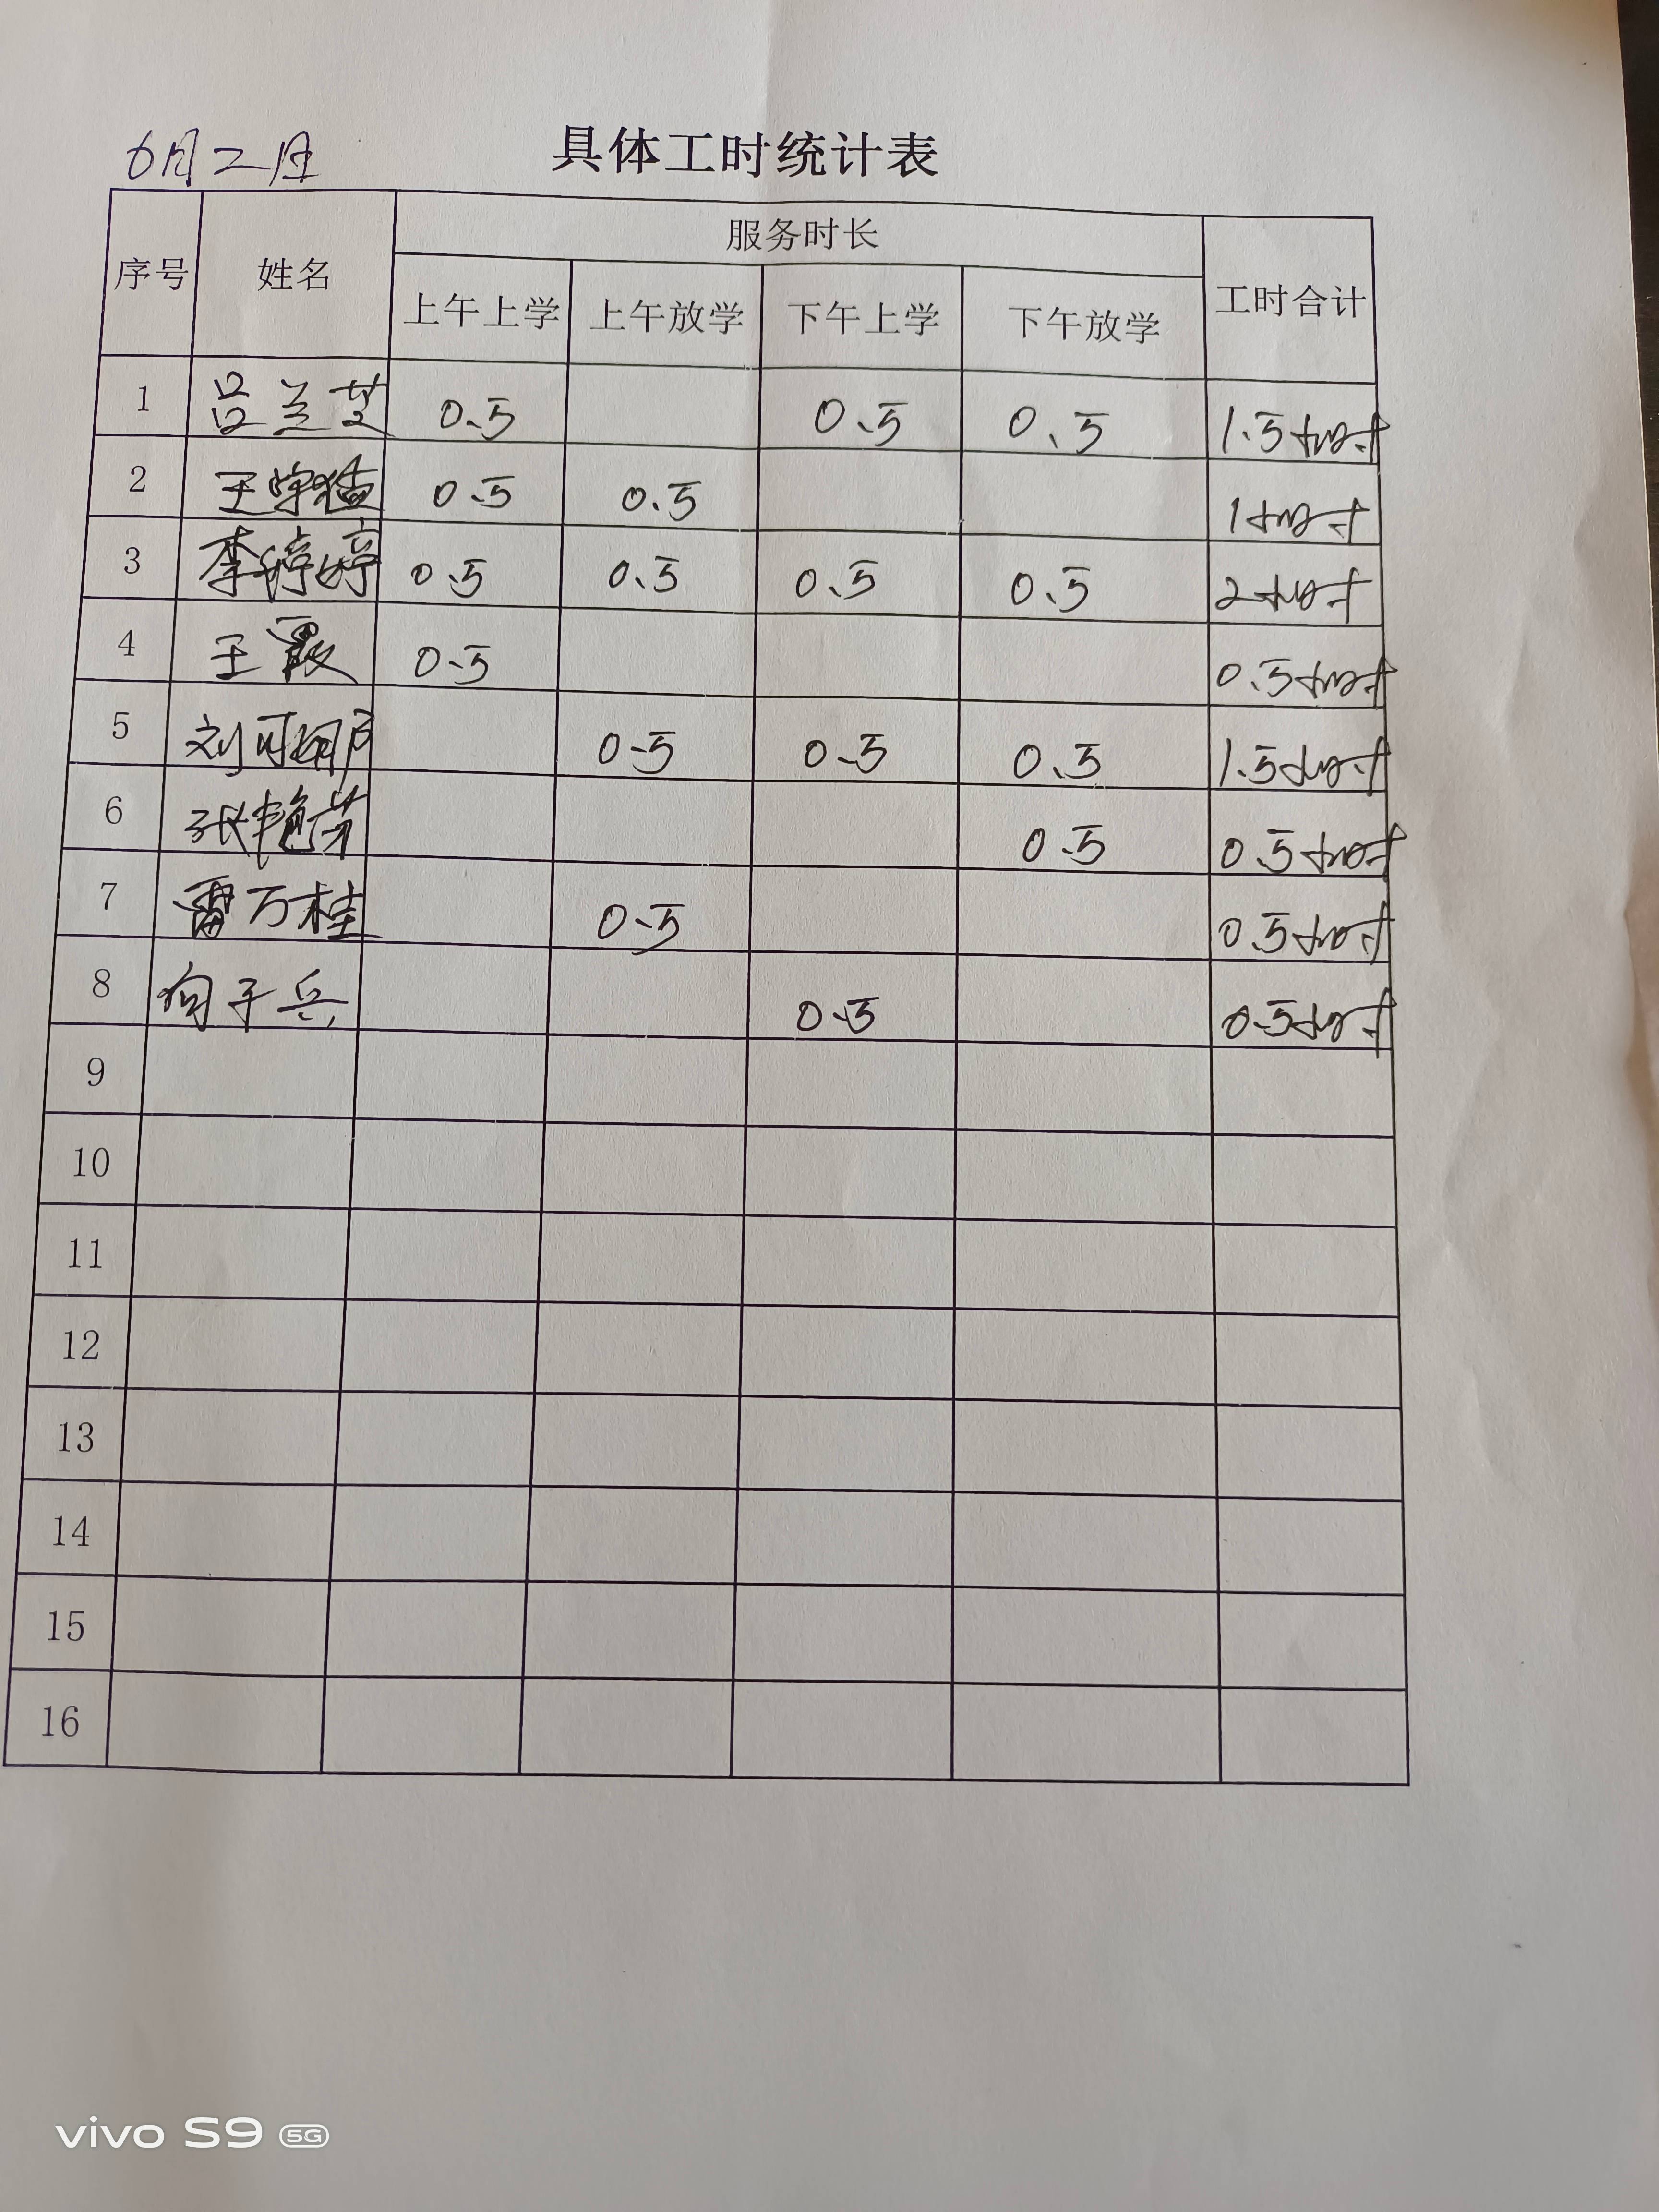 6月二日 具体工时统计表
序号 姓名 服务时长 工时合计
上午上学 上午放学 下午上学 下午放学
1 吕兰芝 0.5 0.5 0.5 1.5小时
2 王 0.5 0.5 1小时
3 李婷婷 0.5 0.5 0.5 0.5 2小时
4 王霞 0.5 0.5小时
5 刘可 0.5 0.5 0.5 1.5小时
6 张艳芳 0.5 0.5小时
7 雷万桂 0.5 0.5小时
8 向于兵 0.5 0.5小时
9
10
11
12
13
14
15
16
vivo S9 5G